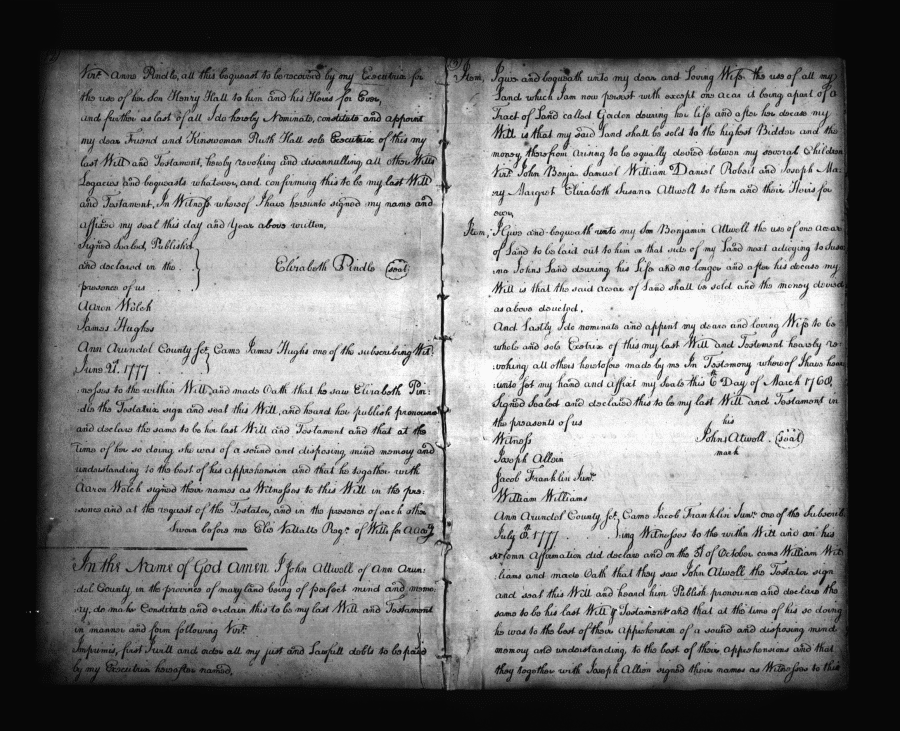 Vizt. Anne Pindle, all this bequeast to be received by my Executrix for
the use of her Son Henry Hall to him and his Heirs for Ever,
and further as last of all I do hereby Nominate, constitute and appoint
my dear Friend and Kinswoman Ruth Hall sole Executrix of this my
last Will and Testament, hereby revoking and disannulling, all other Wills
Legacies and bequeasts whatever, and confirming this to be my last Will
and Testament, In Witness whereof I have hereunto signed my name and
affixed my seal this day and Year above written,
Signed Sealed, Publishd
and declared in the
presence of us
Elizabeth Pindle (seal)
Aaron Welch
James Hughes
Ann Arundel County Sct. Came James Hughs one of the subscribing Wit.
June 21. 1777
nesses to the within Will, and made Oath that he saw Elizabeth Pin:
dle the Testatrix sign and seal this Will, and heard her publish pronounce
and declare the same to be her last Will and Testament and that at the
time of her so doing she was of a sound and disposing mind memory and
understanding to the best of his apprehension and that he together with
Aaron Welch signed their names as Witnesses to this Will in the pre:
sence and at the request of the Testator, and in the presence of each other
Sworn before me Elie Vallette Regr. of Wills for AACoty
In the Name of God amen I John Attwell of Ann Arun:
del County in the province of maryland being of perfect mind and mem:
ry, do make Constitute and ordain this to be my last Will and Testament
in manner and form following Vizt.
Imprimis, first I will and order all my just and Lawfull debts to be paid
by my Executrix hereafter named,
Item, I give and bequeath unto my dear and Loving Wife the use of all my
Land which I am now possest with except one acar it being apart of a
Tract of Land called Gordon douring her life and after her decease my
Will is that my said Land shall be sold to the highest Bidder and the
money therefrom arising to be equally devied between my several Children
Vizt. John Benja. Samuel William Daniel Robert and Joseph Ma:
ry Margret Elizabeth Susana Attwell to them and their Heirs for
ever,
Item, I Give and bequeath unto my Son Benjamin Attwell the use of one acar
of Land to be laid out to him on that side of my Land next adjoying to Susa
na Johns Land douring his Life and no longer and after his decease my
Will is that the said acar of Land shall be sold and the money devied
as above devieted.
And Lastly I do nominate and appint my deare and loving Wife to be
whole and sole Extrix of this my last Will and Testement heareby re:
voking all others heretofore made by me In Testemony whereof I have here
unto set my hand and affixt my Seale this 6th Day of March 1760.
Signed Sealed and declared this to be my last Will and Testament in
the preasents of us
his
Witness
John Atwell (seal)
mark
Joseph Allein
Jacob Franklin Junr.
William Williams
Ann Arundel County Sct. Came Jacob Franklin Junr. one of the Subscrib
July 6th. 1777
ing Witnesses to the within Will and on his
solemn Affirmation did declare and on the 31 of October came William Wil
liams and made Oath that they saw John Atwell the Testator sign
and seal this Will and heard him Publish pronounce and declare the
same to be his last Will & Testament and that at the time of his so doing
he was to the best of their Apprehension of a sound and disposing mind
memory and understanding, to the best of their apprehensions and that
they together with Joseph Allien signed their names as Witnesses to this